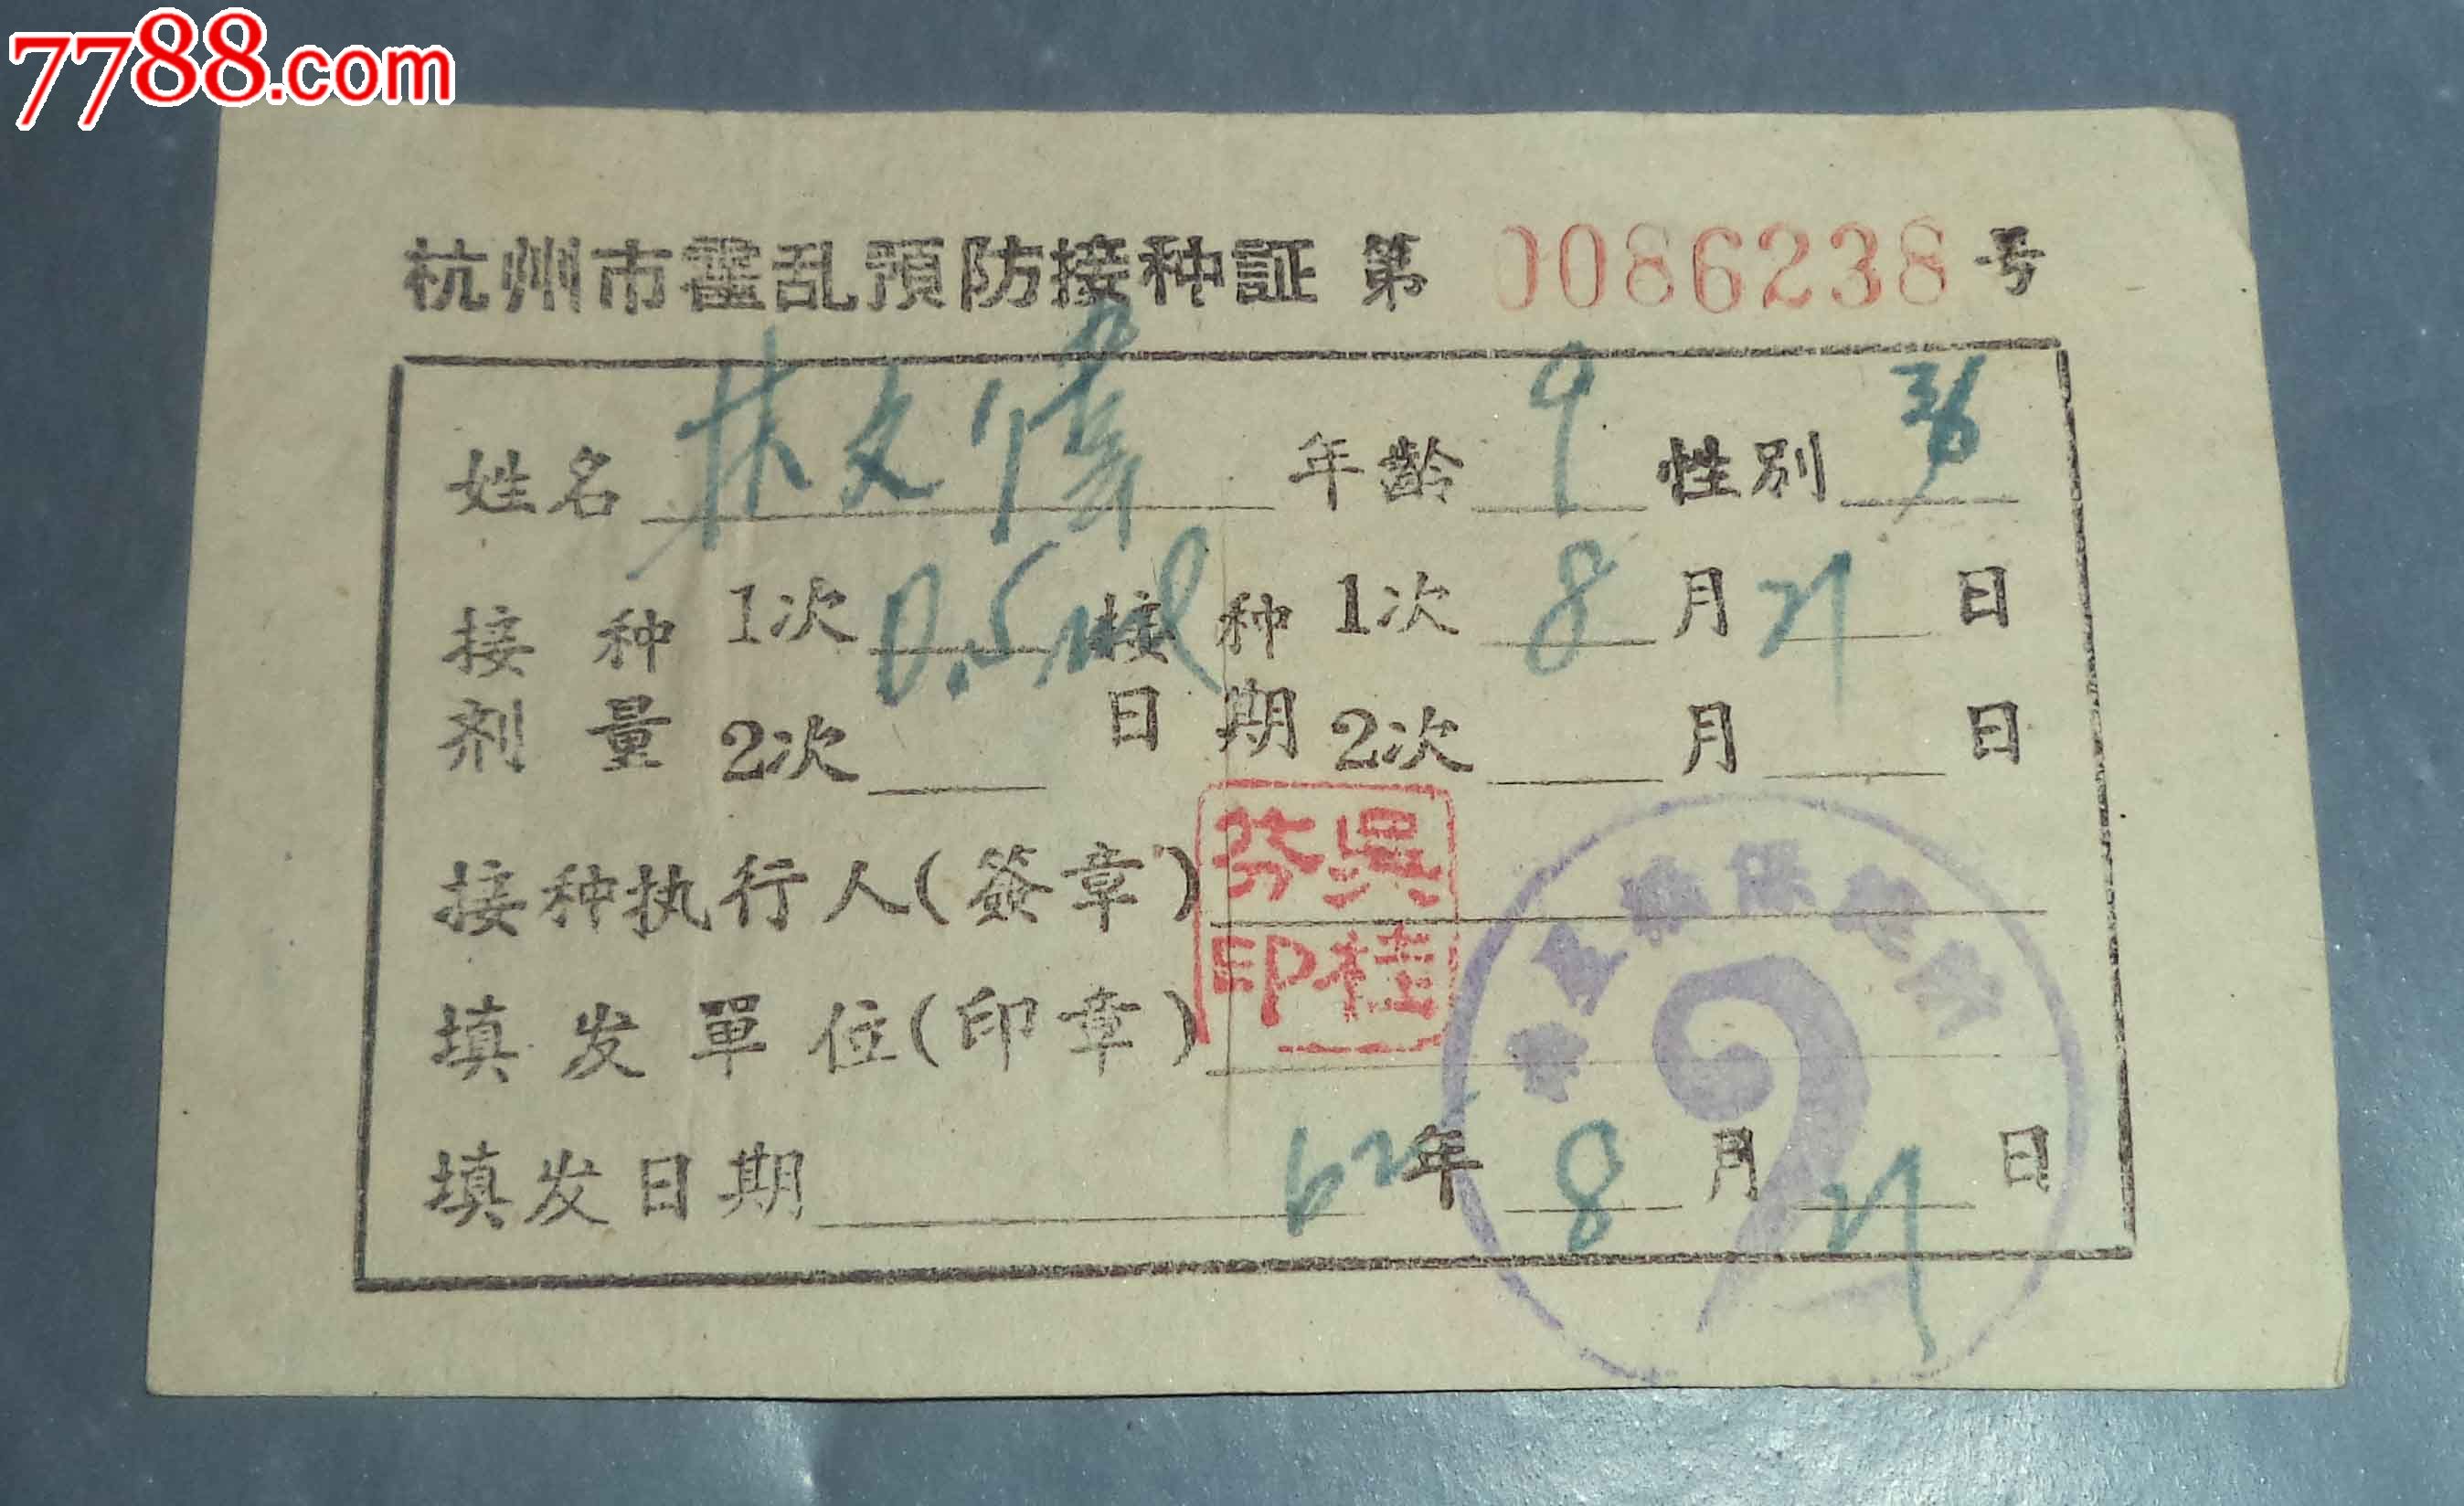 7788.com
杭州市霍乱預防接种証 第 0086238 号
姓名 林文偉 年齡 9 性別 男
接种剂量 1次 0.5ml 接种日期 1次 8月21日
2次 2次 月 日
接种执行人(簽章) 吳桂芬印
填发單位(印章)
填发日期 62年8月21日